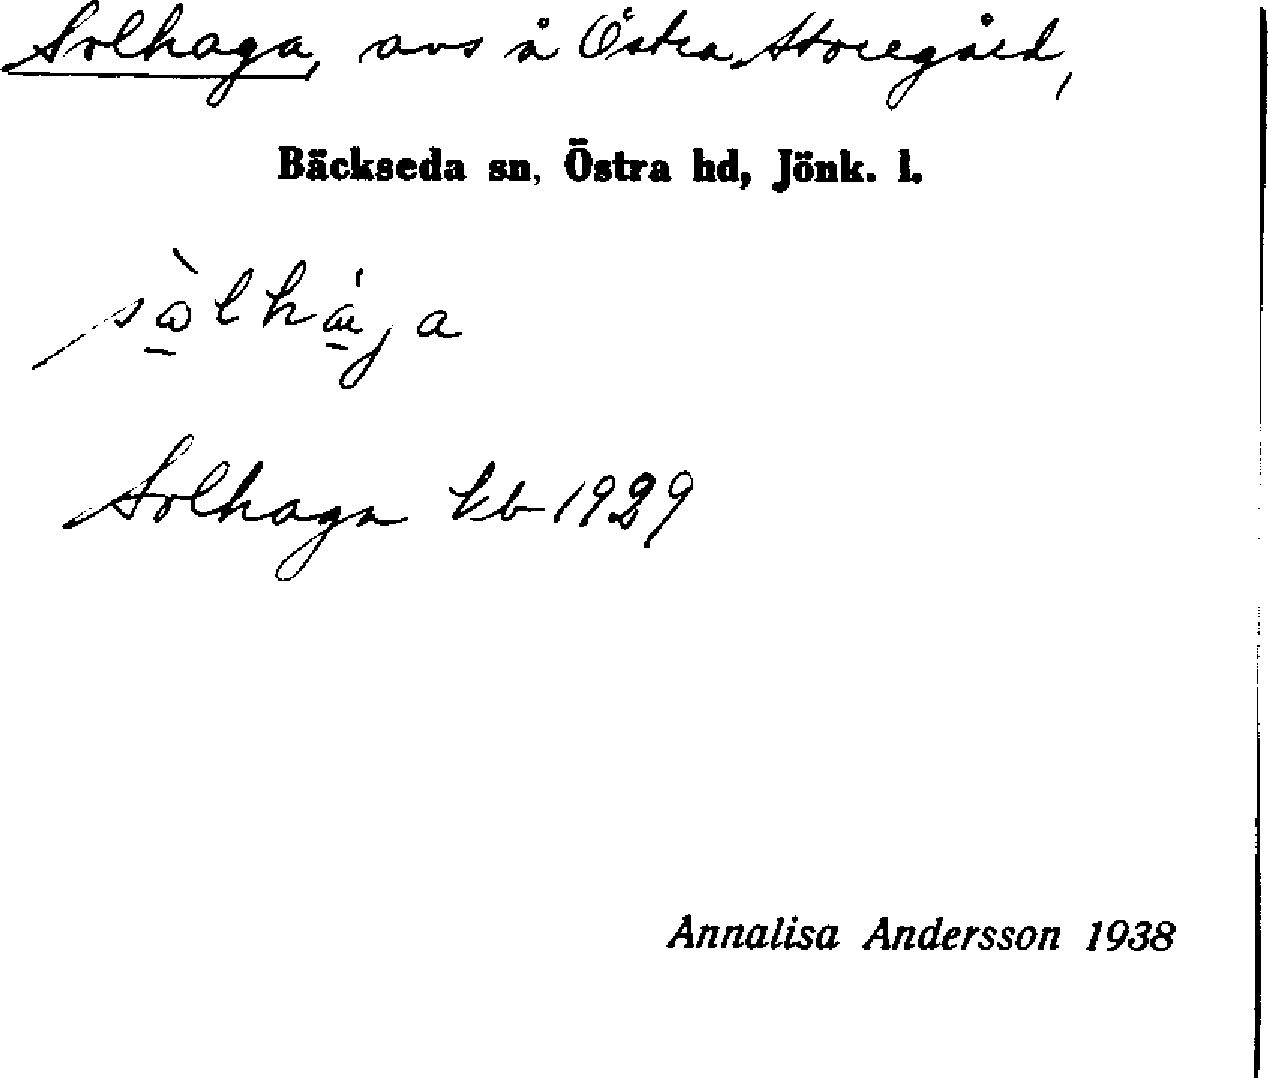 Solhaga, avs å Östra Storegård,
Bäckseda sn, Östra hd, Jönk. l.
Solhaga kb 1929
Annalisa Andersson 1938